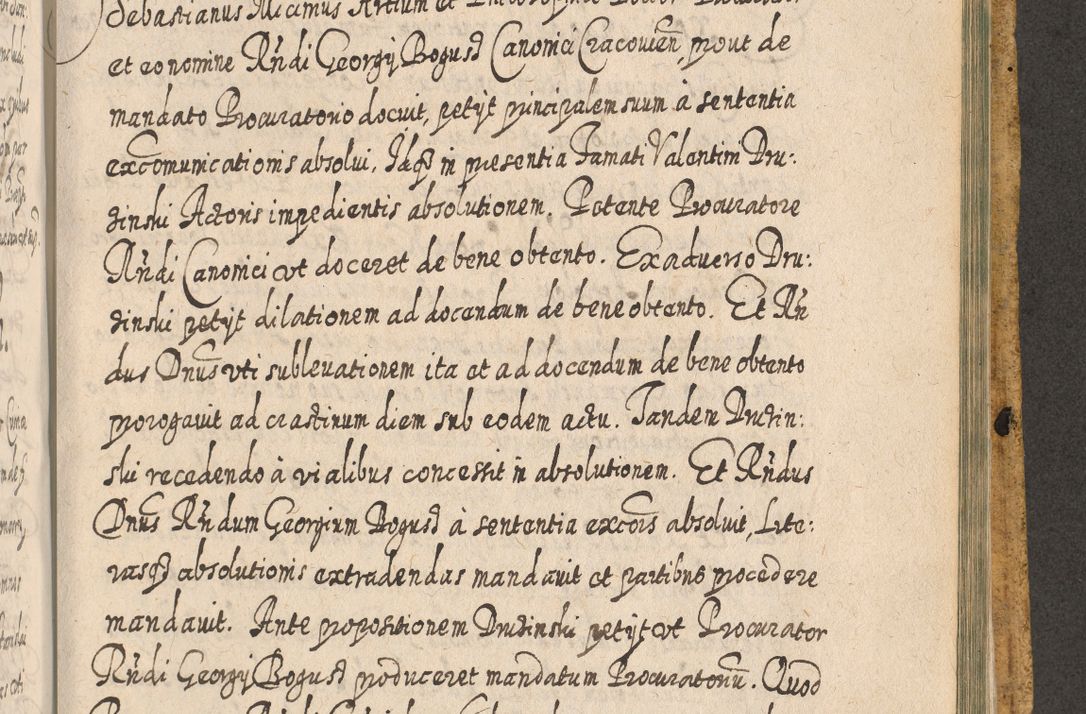 Sebastianus Micimus Artium et Philosophiae Doctor
et eo nomine Rńdi Georgij Bogusz Canonici Cracovień, prout de
mandato Procuratorio docuit, petijt principalem suum à sententia
excōmunicationis absolui, Idq́ in presentia Famati Valentini Dru:
zinski Actoris impedientis absolutionem. Petente Procuratore
Rńdi Canonici vt doceret de bene obtento. Ex aduerso Dru:
zinski petijt dilationem ad docendum de bene obtento. Et Rń
dus Dnūs vti subleuationem ita et ad docendum de bene obtento
prorogauit ad crastinum diem sub eodem actu. Tandem Druzin:
ski recedendo à vi alibus concessit in absolutionem. Et Rńdus
Dnūs Rńdum Georgium Bogusz à sententia excōis absoluit, Lite:
rasq́ absolutionis extradendas mandauit et partibus procedere
mandauit. Ante propositionem Druzinski petijt vt Procurator
Rńdi Georgij Bogusz produceret mandatum Procuratoriū. Quod